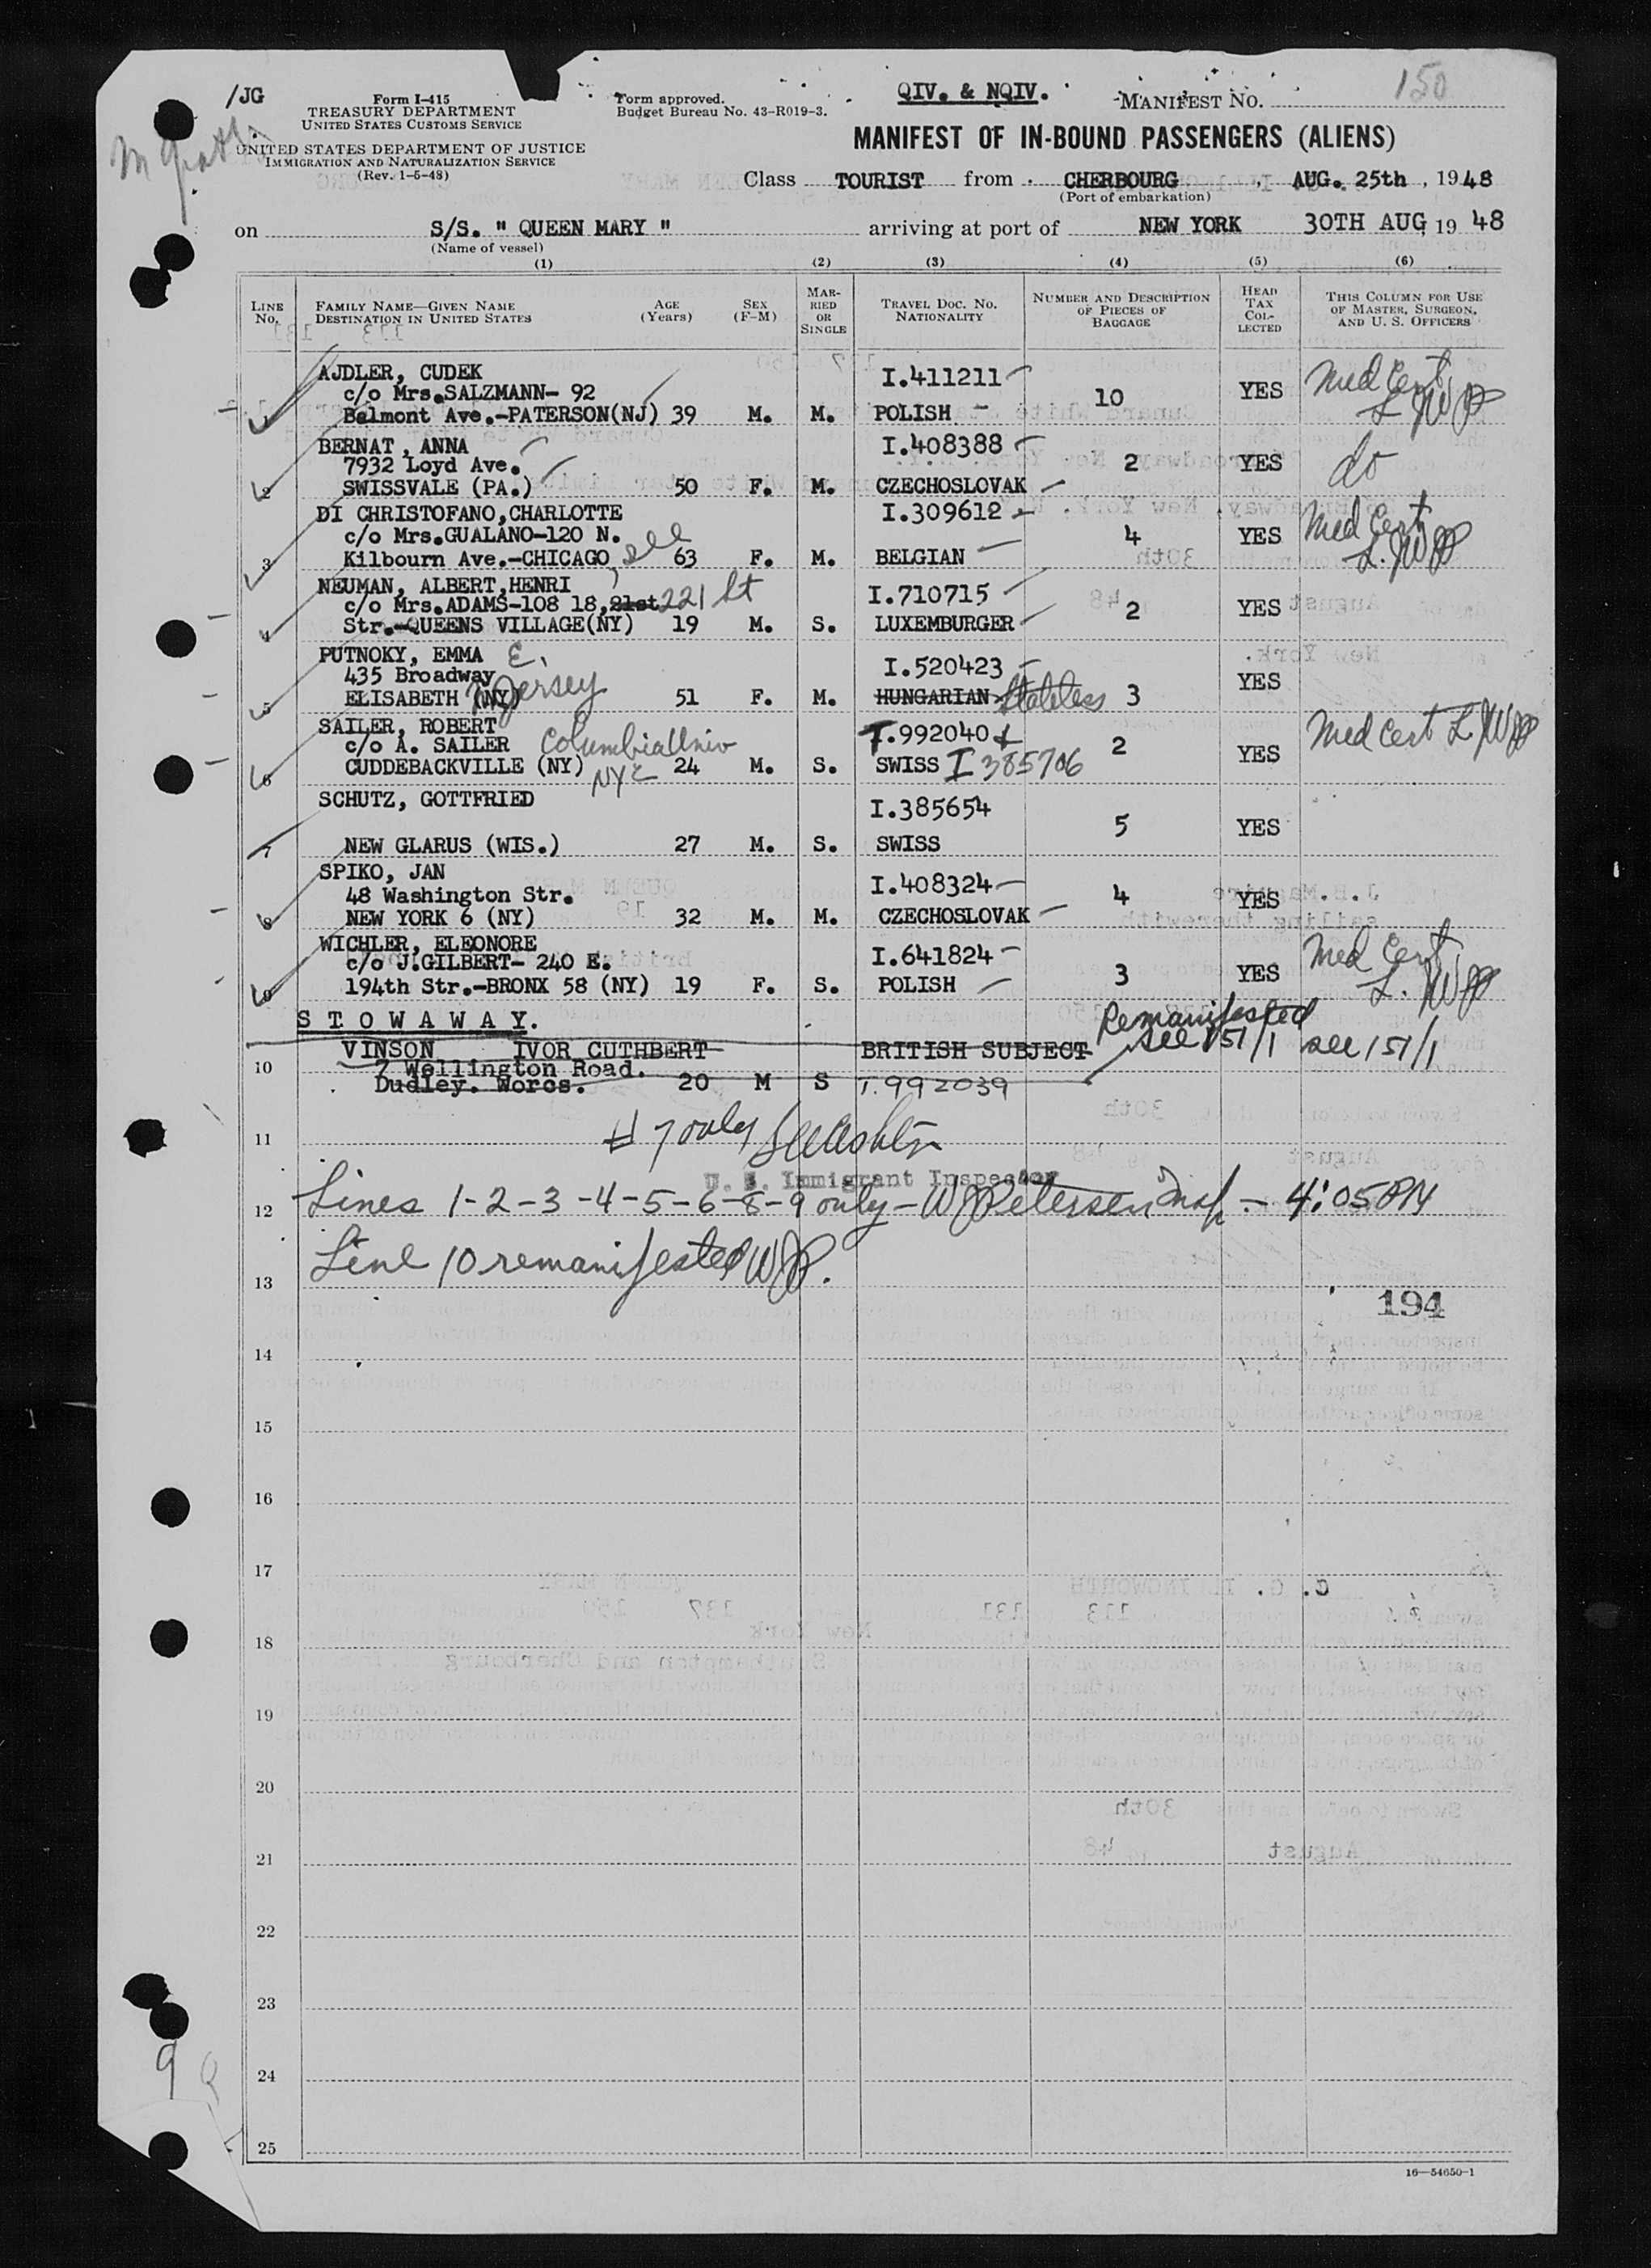 /JG
Form I-415
TREASURY DEPARTMENT
UNITED STATES CUSTOMS SERVICE
UNITED STATES DEPARTMENT OF JUSTICE
IMMIGRATION AND NATURALIZATION SERVICE
(Rev. 1-5-48)
Form approved.
Budget Bureau No. 43-R019-3.
QIV. & NQIV.
MANIFEST NO. 150
MANIFEST OF IN-BOUND PASSENGERS (ALIENS)
Class TOURIST from CHERBOURG, AUG. 25th, 1948
(Port of embarkation)
on S/S. " QUEEN MARY " arriving at port of NEW YORK 30TH AUG, 19 48
(Name of vessel)
(1) (2) (3) (4) (5) (6)
LINE No.
FAMILY NAME—GIVEN NAME
DESTINATION IN UNITED STATES
AGE (Years)
SEX (F-M)
MARRIED OR SINGLE
TRAVEL DOC. NO.
NATIONALITY
NUMBER AND DESCRIPTION OF PIECES OF BAGGAGE
HEAD TAX COLLECTED
THIS COLUMN FOR USE OF MASTER, SURGEON, AND U. S. OFFICERS
AJDLER, CUDEK I.411211 Med Cert
c/o Mrs.SALZMANN- 92 10 YES L. WJP
1 Belmont Ave.-PATERSON(NJ) 39 M. M. POLISH
BERNAT , ANNA I.408388
7932 Loyd Ave. 2 YES do
2 SWISSVALE (PA.) 50 F. M. CZECHOSLOVAK
DI CHRISTOFANO,CHARLOTTE I.309612 Med Cert
c/o Mrs.GUALANO-120 N. 4 YES L. WJP
3 Kilbourn Ave.-CHICAGO, Ill 63 F. M. BELGIAN
NEUMAN, ALBERT,HENRI I.710715
c/o Mrs.ADAMS-108 18,21st 221 St 2 YES
4 Str.-QUEENS VILLAGE(NY) 19 M. S. LUXEMBURGER
PUTNOKY, EMMA E. I.520423
435 Broadway YES
5 ELISABETH (NY) N Jersey 51 F. M. HUNGARIAN Stateless 3
SAILER, ROBERT T.992040 Med Cert L. WJP
c/o A. SAILER Columbia Univ 2 YES
6 CUDDEBACKVILLE (NY) NYC 24 M. S. SWISS I 385706
SCHUTZ, GOTTFRIED I.385654
5 YES
7 NEW GLARUS (WIS.) 27 M. S. SWISS
SPIKO, JAN I.408324
48 Washington Str. 4 YES
8 NEW YORK 6 (NY) 32 M. M. CZECHOSLOVAK
WICHLER, ELEONORE I.641824 Med Cert
c/o J.GILBERT- 240 E. 3 YES L. WJP
9 194th Str.-BRONX 58 (NY) 19 F. S. POLISH
STOWAWAY. Remanifested
see 151/1 see 151/1
10 VINSON IVOR CUTHBERT BRITISH SUBJECT
7 Wellington Road.
Dudley. Worcs. 20 M S T.992039
11 # 7 only
U. S. Immigrant Inspector
12 Lines 1-2-3-4-5-6-8-9 only - WJPetersen Insp. - 4:05 PM
13 Line 10 remanifested WJP.
194
14
15
16
17
18
19
20
21
22
23
9
24
25
16—54650-1